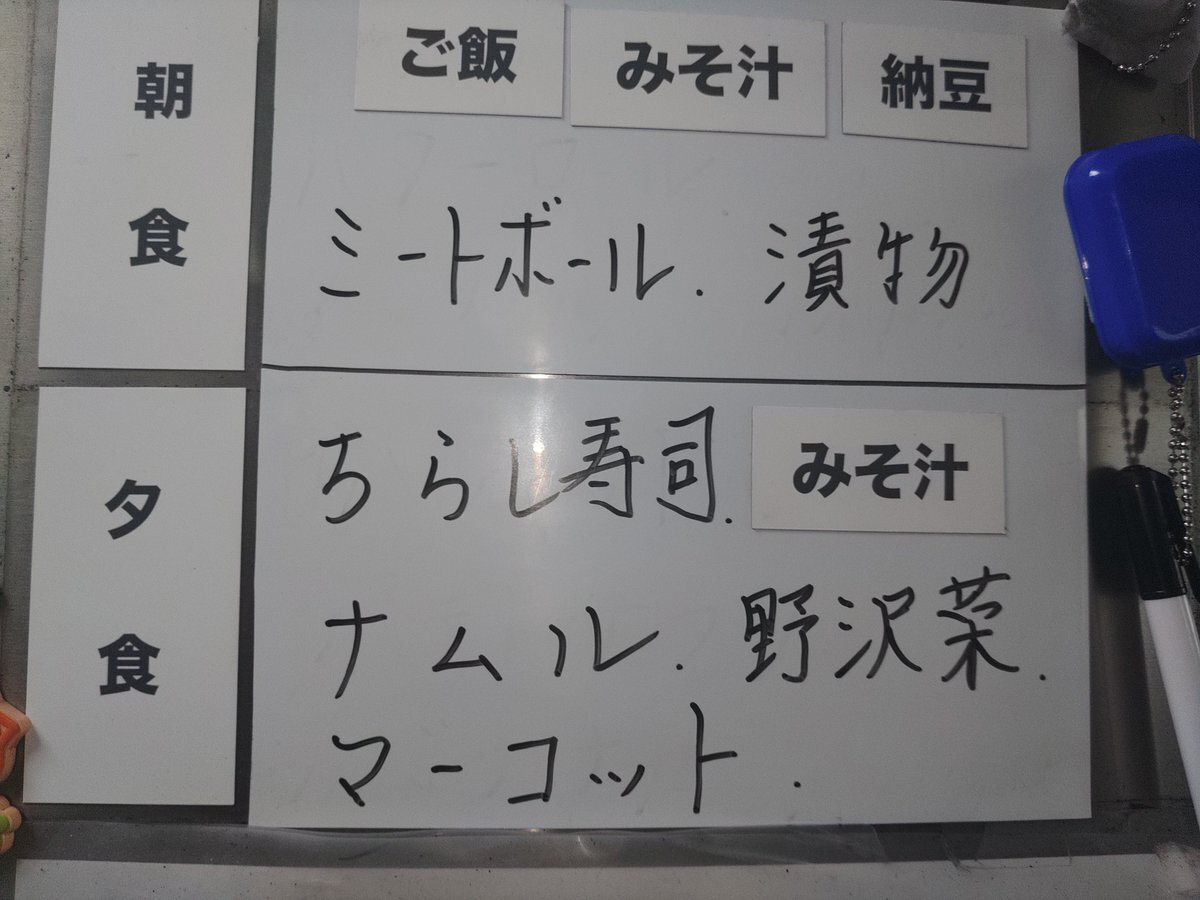 朝食
ご飯 みそ汁 納豆
ミートボール. 漬物
夕食
ちらし寿司. みそ汁
ナムル. 野沢菜.
マーコット.